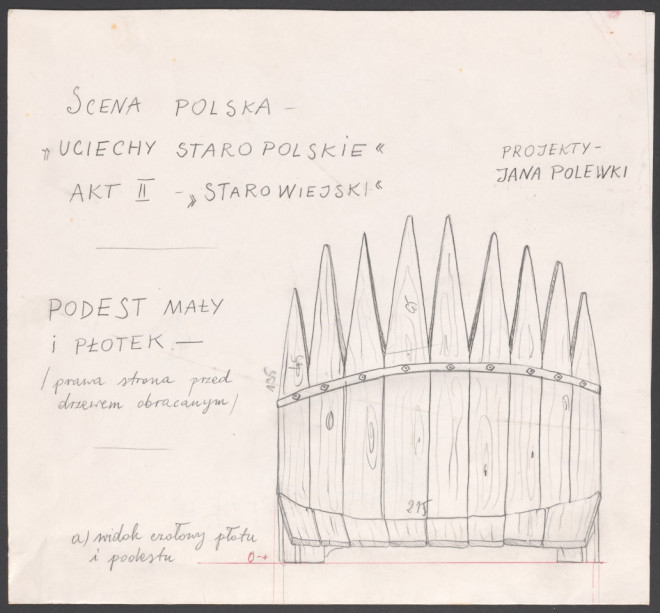 SCENA POLSKA -
„UCIECHY STAROPOLSKIE“
AKT II - „STAROWIEJSKI“
PROJEKTY -
JANA POLEWKI
PODEST MAŁY
i PŁOTEK -
/prawa strona przed
drzewem obracanym/
135
215
a) widok czołowy płotu
i podestu